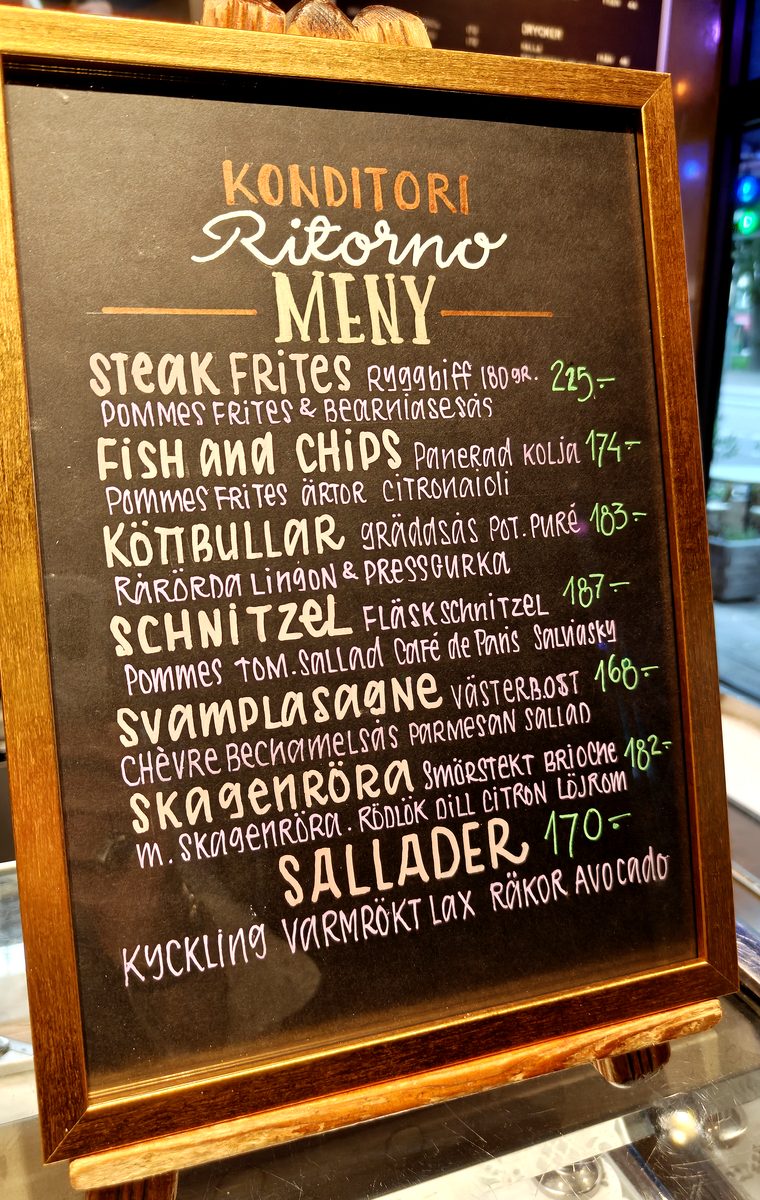 KONDITORI
Ritorno
MENY
STEAK FRITES Ryggbiff 180 GR. 225:-
POMMES FRITES & BEARNIASESÅS
FISH and CHIPS PANERAD KOLJA 174:-
POMMES FRITES ÄRTOR CITRONAIOLI
KÖTTBULLAR GRÄDDSÅS POT. PURÉ 183:-
RÅRÖRDA LINGON & PRESSGURKA
SCHNITZEL FLÄSKSCHNITZEL 187:-
POMMES TOM. SALLAD CAFÉ de PARIS SALVIASKY
SVAMPLASAGNE VÄSTERBOST 168:-
CHÈVRE BECHAMELSÅS PARMESAN SALLAD
SKAGENRÖRA SMÖRSTEKT BRIOCHE 182:-
m. SKAGENRÖRA. RÖDLÖK DILL CITRON LÖJROM
SALLADER 170:-
KYCKLING VARMRÖKT LAX RÄKOR AVOCADO